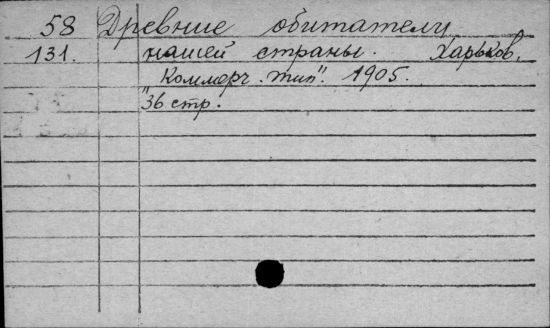 58 Древние обитатели
131. нашей страны. Харьков,
"Коммерч. тип". 1905.
36 стр.